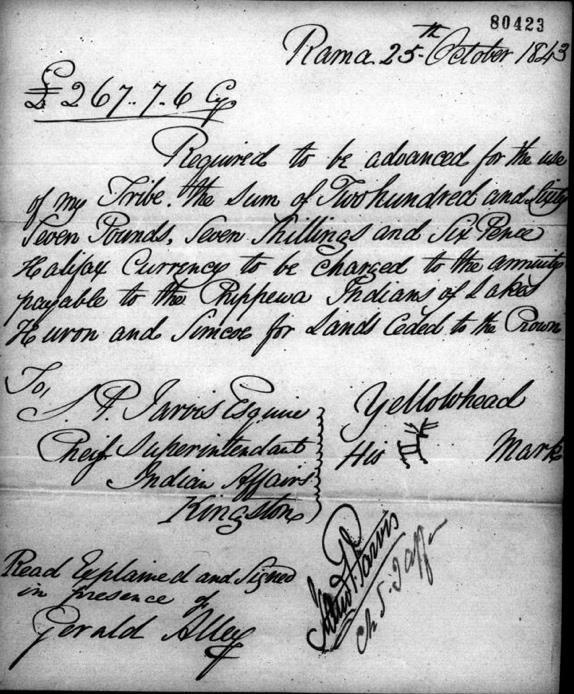 80423
Rama. 25th October 1843
£267..7.6 Cy
Required to be advanced for the use
of my Tribe. the sum of Two hundred and Sixty
Seven Pounds, Seven Shillings and Six Pence
Halifax Currency to be Charged to the annuity
payable to the Chippewa Indians of Lakes
Huron and Simcoe for Lands Ceded to the Crown
To,
S. P. Jarvis Esquire
Cheif Superintendant
Indian Affairs
Kingston
Yellowhead
His Mark
Read Explained and Signed
in presence of
Gerald Alley
Jarvis